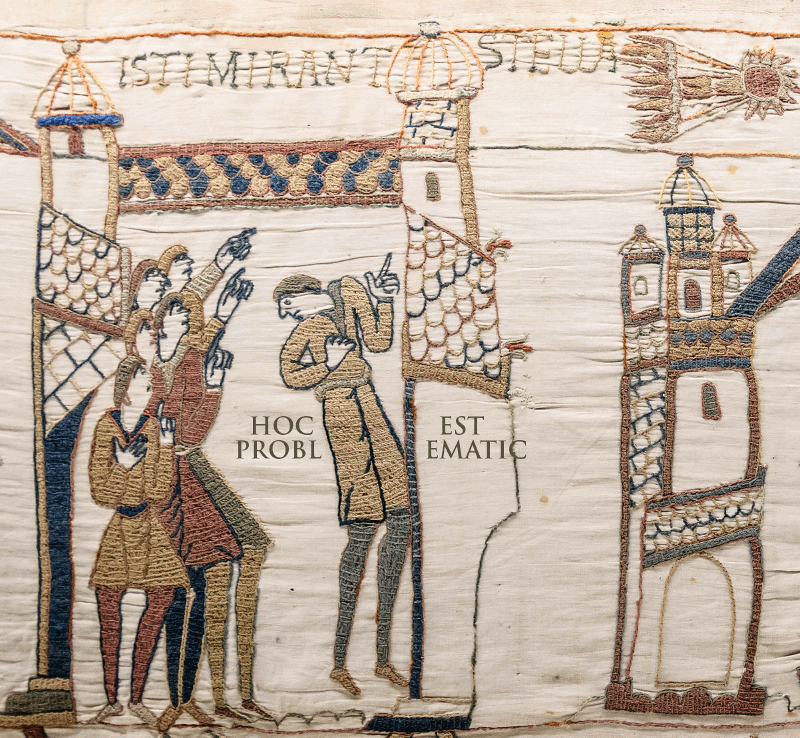 ISTI MIRANT STELLA
HOC EST
PROBLEMATIC